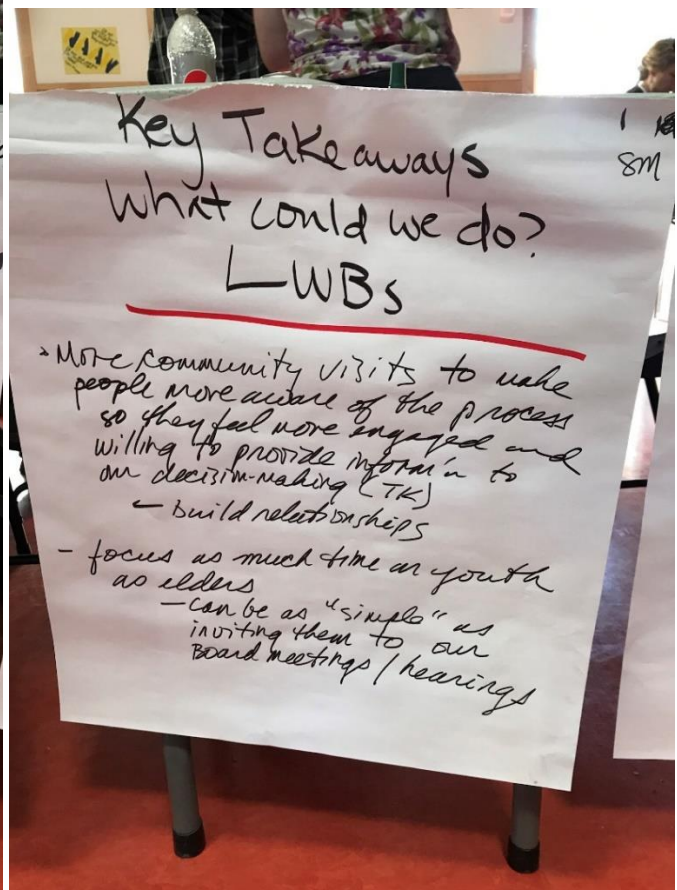 Key Takeaways
What could we do?
LWBs
- More community visits to make
people more aware of the process
so they feel more engaged and
willing to provide inform'n to
our decision-making (TK)
- build relationships
- focus as much time on youth
as elders
- can be as "simple" as
inviting them to our
Board meetings / hearings
SM